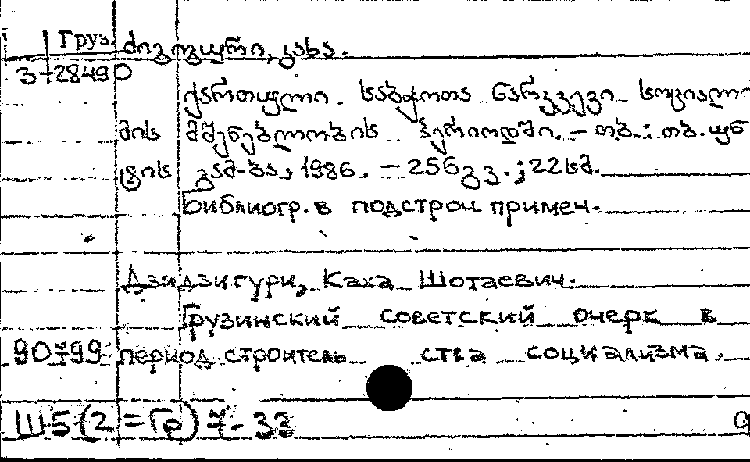 Груз. ძიძიგური, კახა.
3-28490
ქართული საბჭოთა ნარკვევი სოციალიზ
მის მშენებლობის პერიოდში. – თბ.: თბ. უნ
ტის გამ-ბა, 1986. – 256გვ.; 22სმ.
Библиогр. в подстроч примеч.
Дзидзигури, Каха Шотаевич.
Грузинский советский очерк в
90-99 период строитель ства социализма.
Ш5(2=Гр)7-33